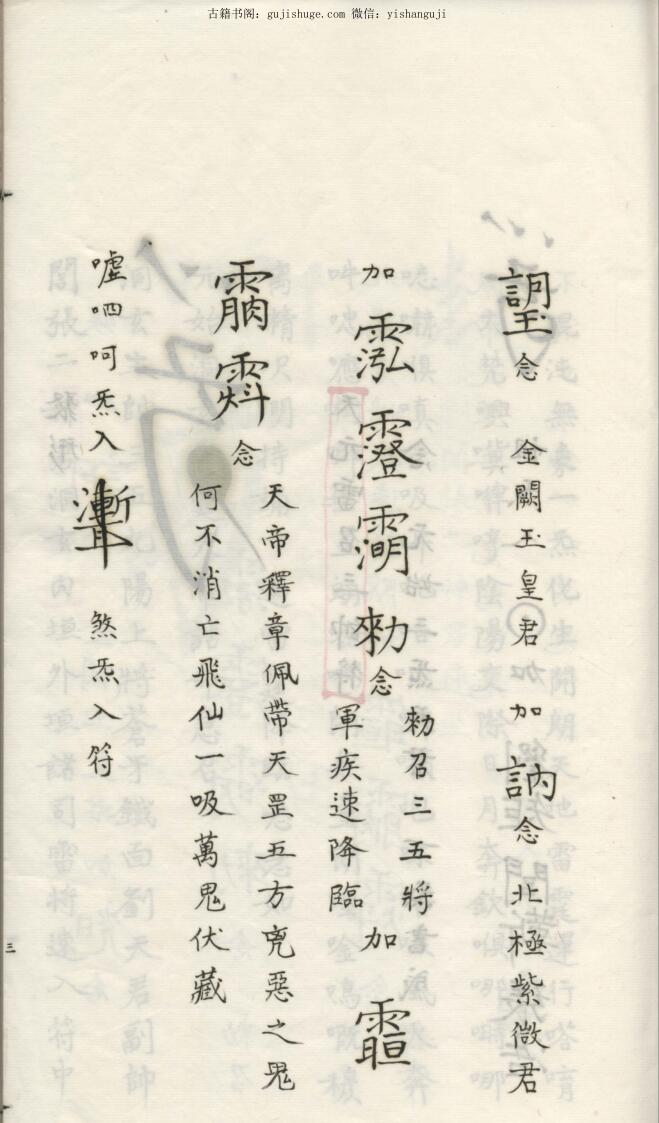 古籍书阁：gujishuge.com 微信：yishanguji
念 金闕玉皇君 加 加 訥 念 北極紫微君
加 霐 勑 念 勑召三五將
軍疾速降臨 加
念 天帝釋章佩帶天罡五方兇惡之鬼
何不消亡飛仙一吸萬鬼伏藏
噓呬呵炁入 煞炁入符
三